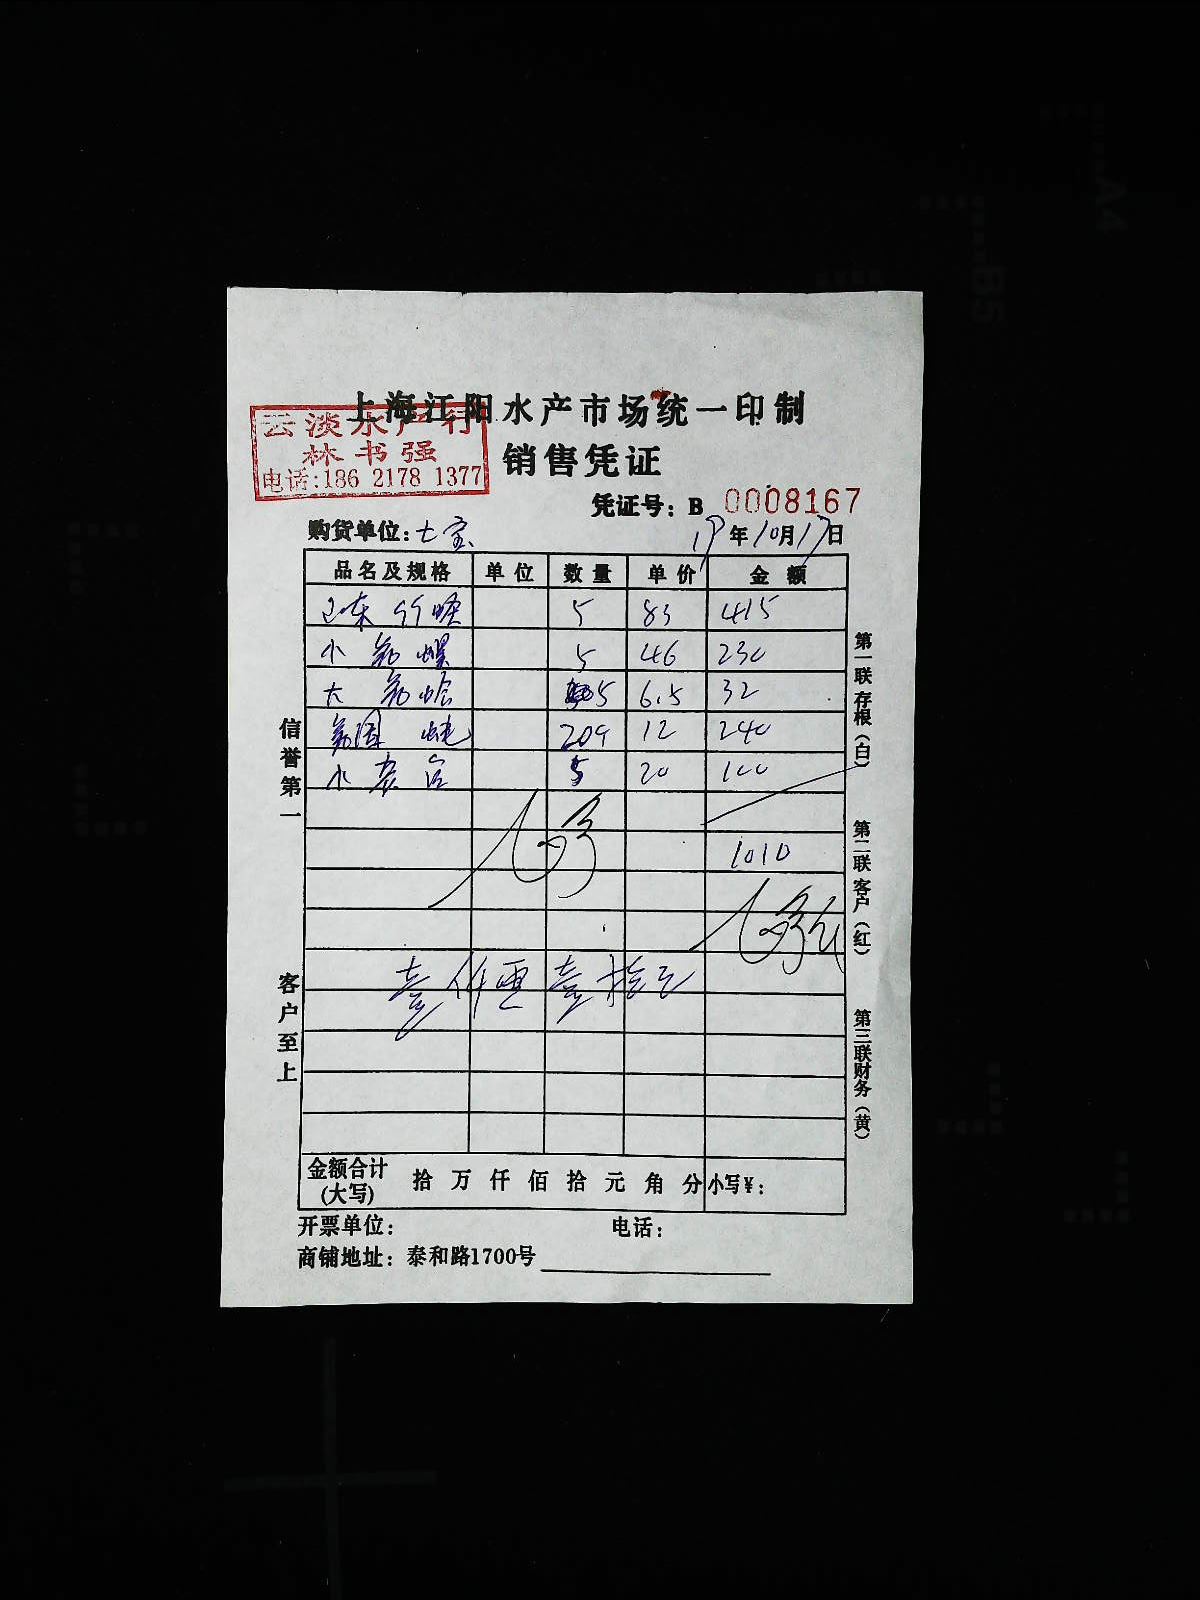 上海江阳水产市场统一印制
云淡水产行
林书强
电话:186 2178 1377
销售凭证
凭证号: B 0008167
购货单位: 七宝
19年10月17日
品名及规格 单位 数量 单价 金额
5 83 415
小 5 46 230
大 5 6.5 32
12 240
小 5 20 100
1010
壹仟零壹拾元
金额合计(大写) 拾 万 仟 佰 拾 元 角 分 小写¥:
开票单位: 电话:
商铺地址: 泰和路1700号
信誉第一
客户至上
第一联存根(白)
第二联客户(红)
第三联财务(黄)
A4
B5